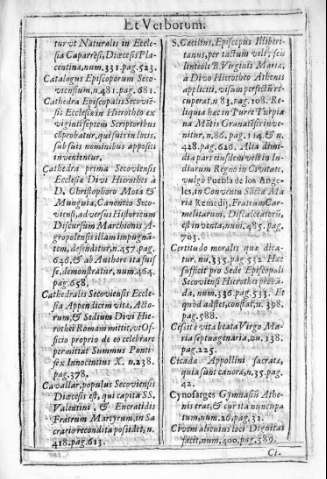 Et Verborum.
tur ut Naturalis in Eccle-
sia Caparrensi, Diœcesis Pla-
centina, num. 331. pag. 523.
Catalogus Episcoporum Seco-
viensium, n. 481. pag. 681.
Cathedra Episcopalis Secoviẽ-
sis Ecclesiæ in Hierotheo ex
viginti septem Scriptoribus
cõprobatur, qui sui in locis,
sub suis nominibus appositi
invenientur.
Cathedra prima Secoviensis
Ecclesiæ Divi Hierothei à
D. Christophoro Mora &
Munguia, Canonico Seco-
viensi, adversus Historicum
Discursum Marchionis A-
gropolensis illam impugnã-
tem, defenditur, n. 457. pag.
626, & ab Authore ita suis-
se, demonstratur, num. 464.
pag. 658.
Cathedralis Secoviensis Eccle-
sia Appendicem vitæ, Atho-
rum, & Sedium Divi Hie-
rothei Romam mittit, ut Of-
ficio proprio de eo celebrare
permittat Summus Ponti-
fex Innocentius X. n. 238.
pag. 378.
Cavallar, populus Secoviensis
Diœcesis est, qui capita SS.
Valentini, & Encratidis
Fratrum Martyrum, in Sa-
crario recondita possidet, n.
418. pag. 613.
S. Cœcilius, Episcopus Illiberi-
tanus, per tactum veli, seu
lintheoli B. Virginis Mariæ,
à Divo Hierotheo Athenis
applicati, visum perfectè re-
cuperat, n. 83. pag. 108. Re-
liquia hæc in Turre Turpia-
na Mõtis Granatensis inve-
nitur, n. 86. pag. 114. & n.
428. pag. 620. Alia dimi-
dia pars ejusdem veli in In-
diarum Regno in Civitate,
vulgò Puebla de los Ange-
les, in Conventu Sãctæ Ma-
riæ Remedij, Fratrum Car-
melitarum, Discalceatorũ,
est inventa, num. 485. pag.
703.
Certitudo moralis quæ dica-
tur. nu. 335. pag. 532. Hæc
sufficit pro Sede Episcopali
Secoviensi Hierothei proba-
da, num. 336. pag. 533. Et
quòd adsit, constat, n. 398.
pag. 588.
Cessit è vita beata Virgo Ma-
ria septuagenaria, nu. 138.
pag. 225.
Cicada Appollini sacrata,
quia sunt canora, n. 35. pag.
42.
Cynosarges Gymnasiũ Athe-
nis erat, & cur ita nuncupa-
tum, num. 26. pag. 32.
Civem alicuius loci Dignitas
facit, num. 400. pag. 589.
Ci-